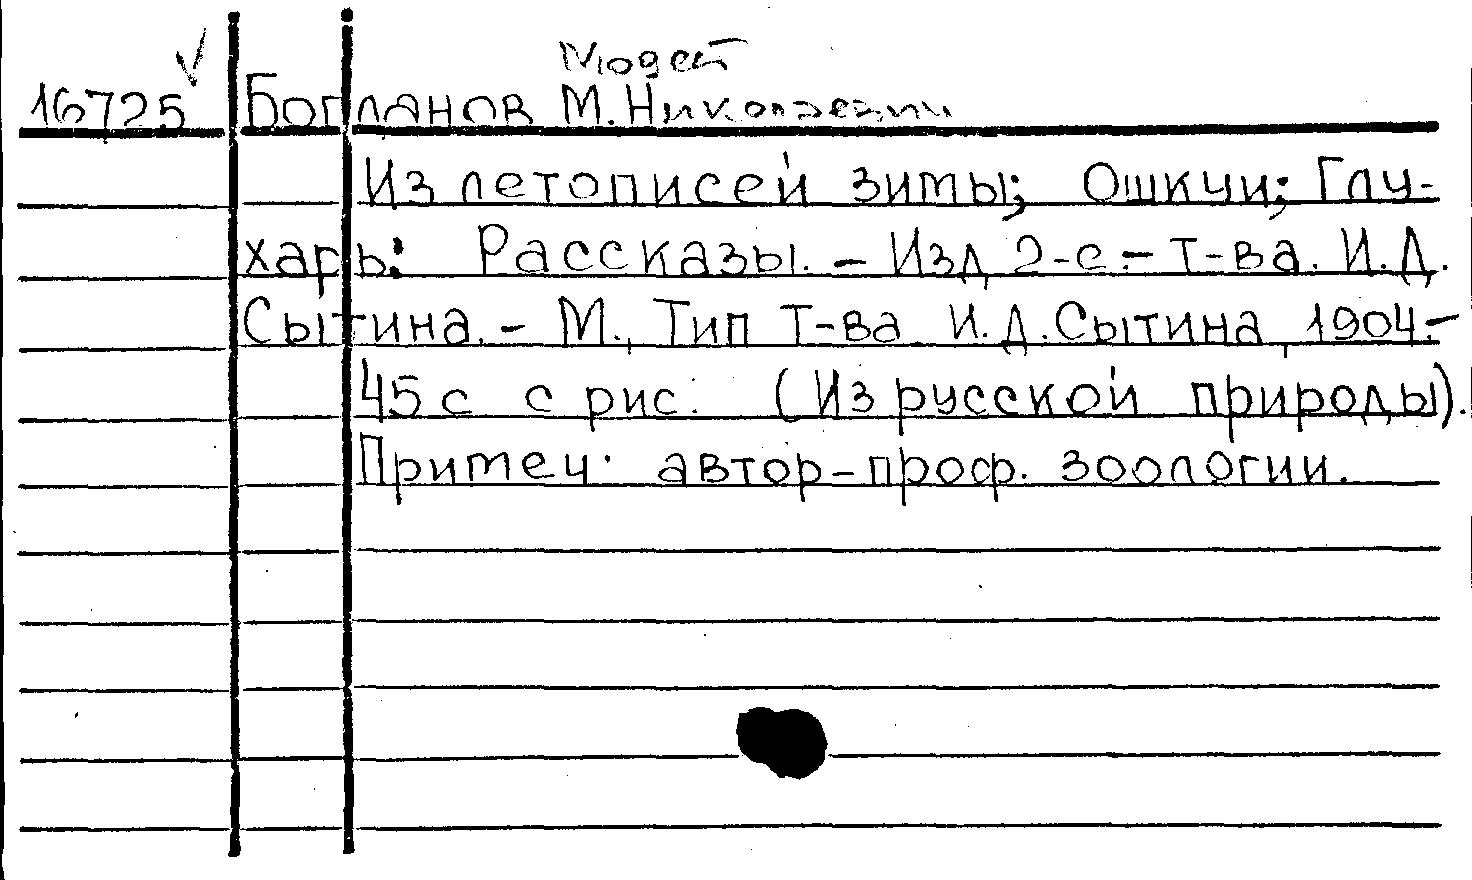 Модест
16725 Богданов М. Николаевич
Из летописей зимы; Ошкуи; Глу-
харь: Рассказы. – Изд 2-е. – Т-ва. И.Д.
Сытина. – М., Тип Т-ва И.Д. Сытина, 1904. –
45 с с рис. (Из русской природы).
Примеч: автор – проф. зоологии.